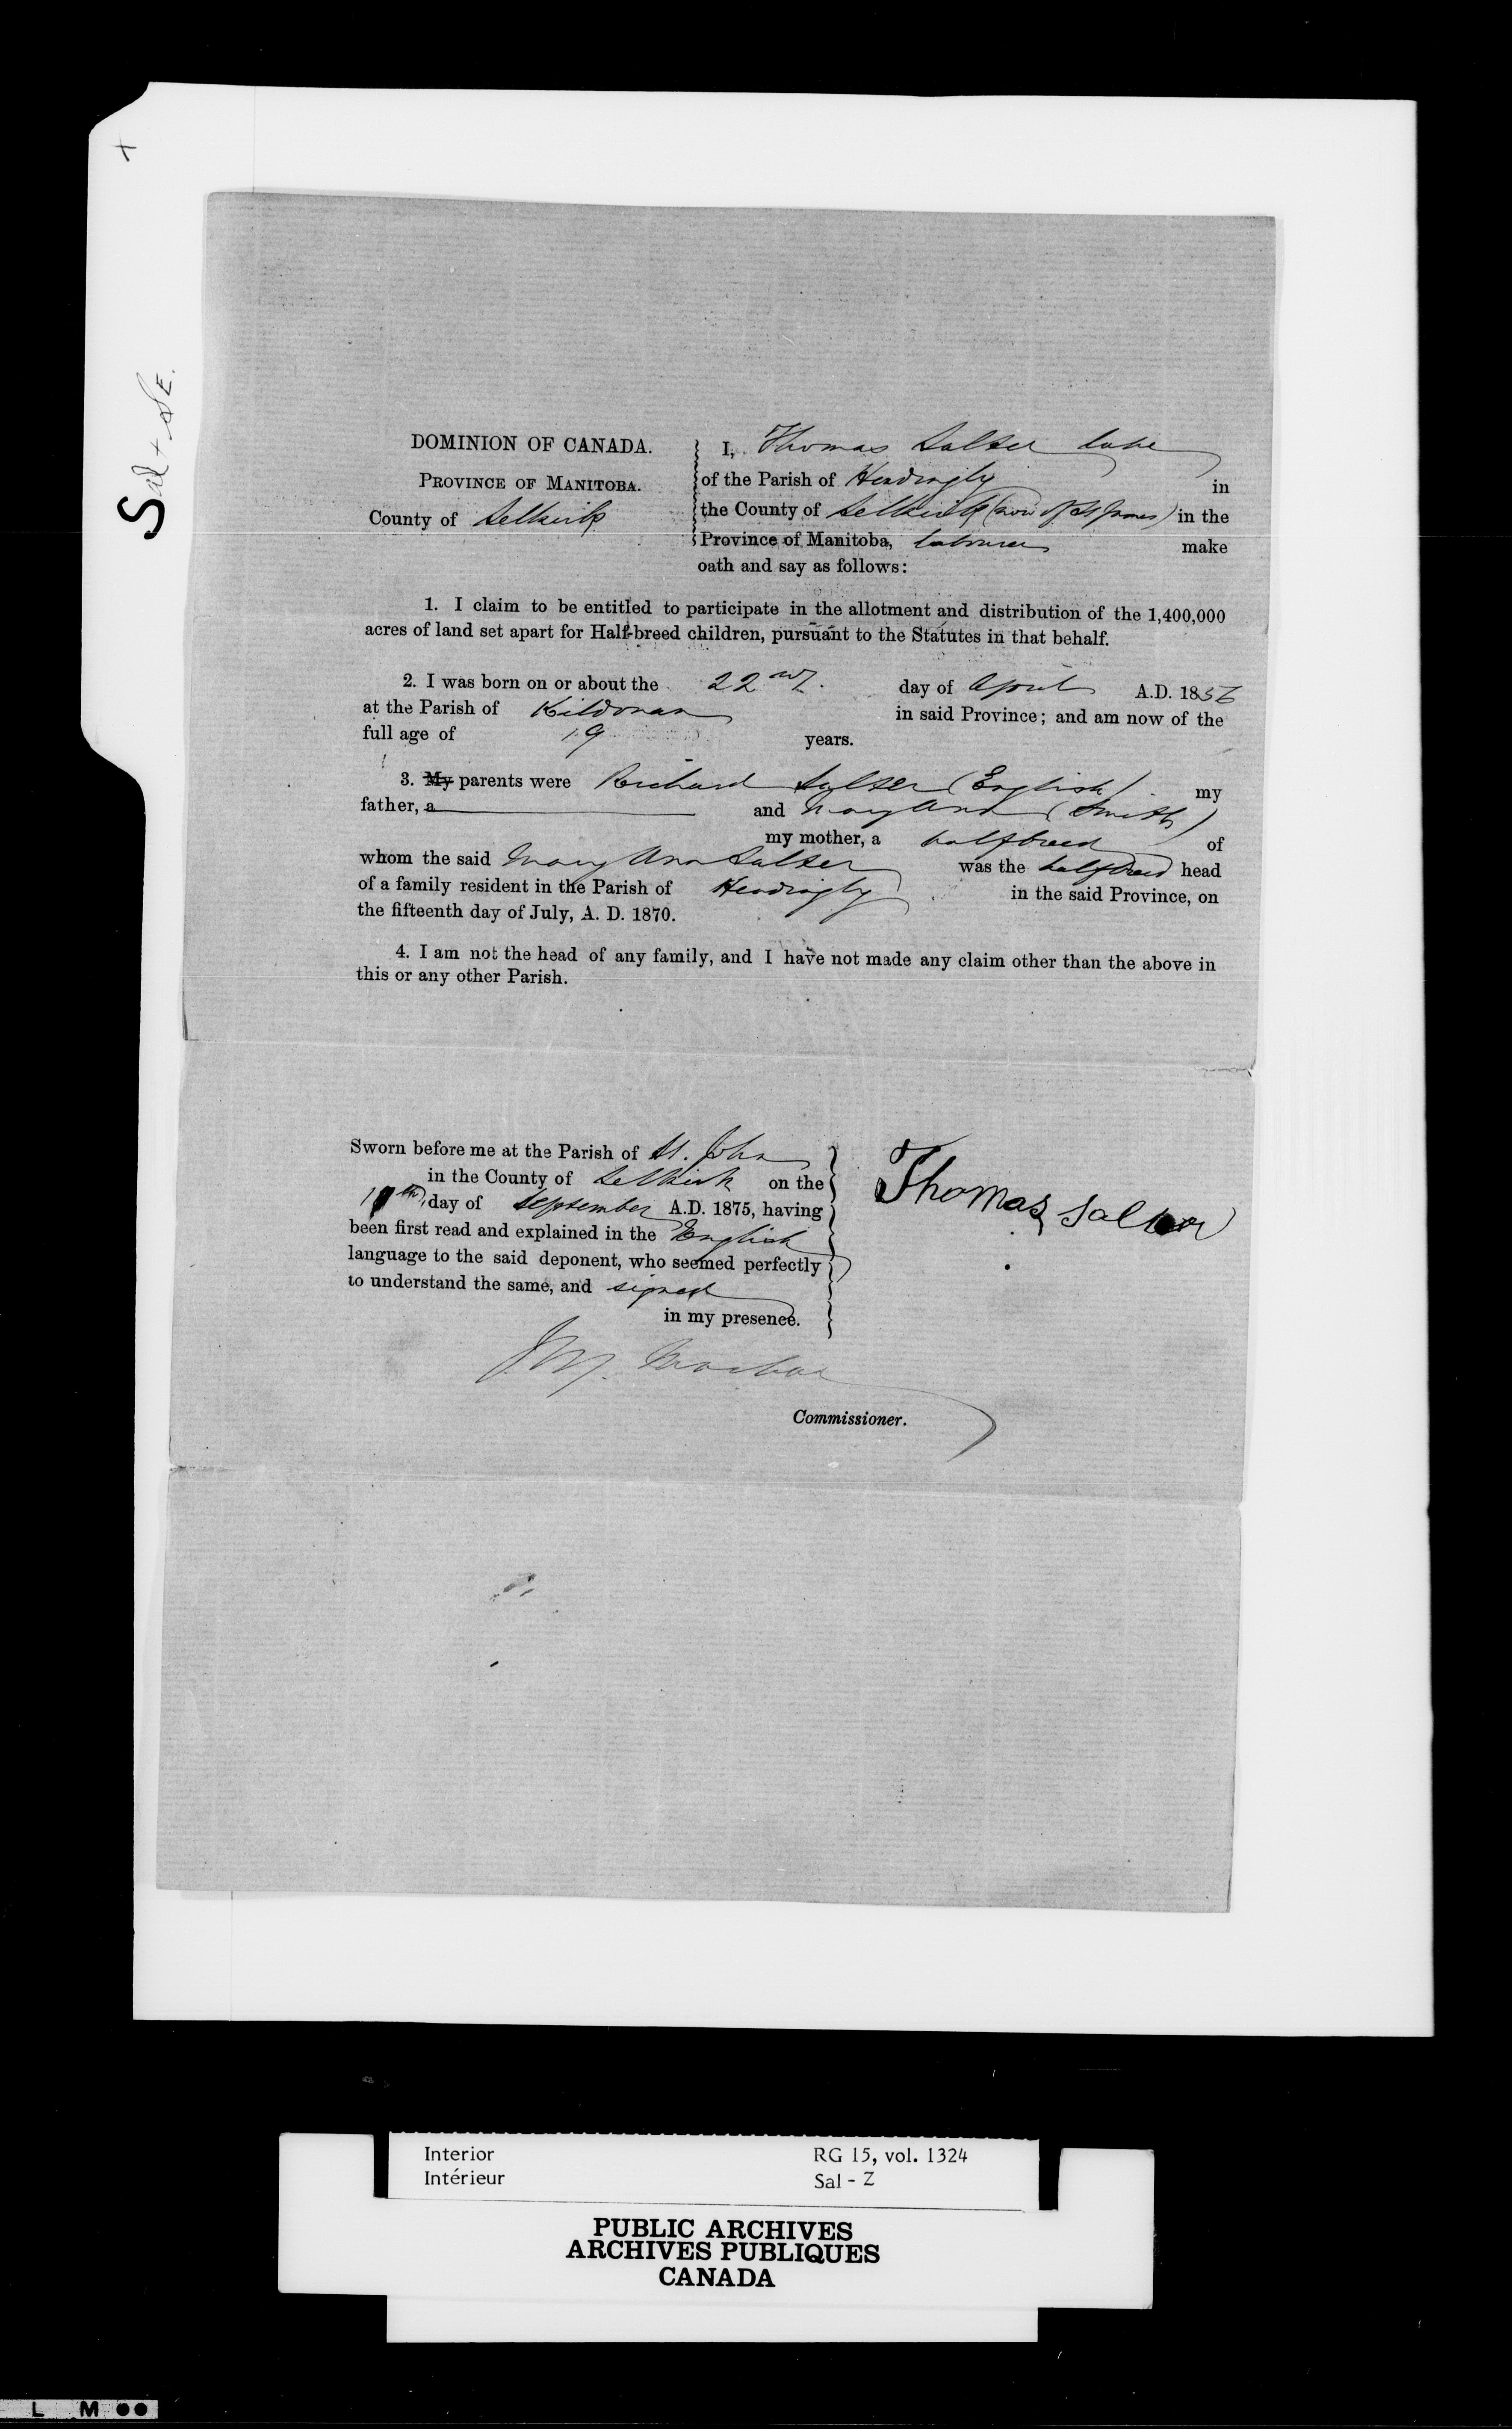 X
Sal + SE.
DOMINION OF CANADA.
PROVINCE OF MANITOBA.
County of Selkirk
I, Thomas Salter late
of the Parish of Headingly in
the County of Selkirk (now of St James) in the
Province of Manitoba, labourer make
oath and say as follows:
1. I claim to be entitled to participate in the allotment and distribution of the 1,400,000
acres of land set apart for Half-breed children, pursuant to the Statutes in that behalf.
2. I was born on or about the 22nd. day of April A.D. 1856
at the Parish of Kildonan in said Province; and am now of the
full age of 19 years.
3. My parents were Richard Salter (English) my
father, a and Mary Ann (Smith)
my mother, a halfbreed of
whom the said Mary Ann Salter was the halfbreed head
of a family resident in the Parish of Headingly in the said Province, on
the fifteenth day of July, A. D. 1870.
4. I am not the head of any family, and I have not made any claim other than the above in
this or any other Parish.
Sworn before me at the Parish of St. John
in the County of Selkirk on the
day of September A.D. 1875, having
been first read and explained in the English
language to the said deponent, who seemed perfectly
to understand the same, and signed
in my presence.
Thomas Salter
J. M. Machar
Commissioner.
Interior
Intérieur
RG 15, vol. 1324
Sal - Z
PUBLIC ARCHIVES
ARCHIVES PUBLIQUES
CANADA
L M